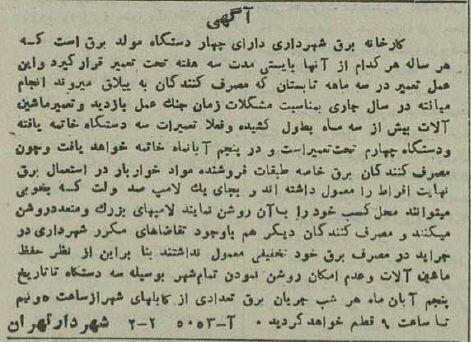 آگهی
کارخانه برق شهرداری دارای چهار دستگاه مولد برق است که
هر ساله هر کدام از آنها بایستی مدت سه هفته تحت تعمیر قرار گیرد و این
عمل تعمیر در سه ماهه تابستان که مصرف کنندگان به ییلاق میروند انجام
میافته در سال جاری بمناسبت مشکلات زمان جنگ عمل بازدید و تعمیر ماشین
آلات بیش از سه ماه بطول کشیده و فعلا تعمیرات سه دستگاه خاتمه یافته
و دستگاه چهارم تحت تعمیر است و در پنجم آبانماه خاتمه خواهد یافت و چون
مصرف کنندگان برق خاصه طبقات فروشنده مواد خواربار در استعمال برق
نهایت افراط را معمول داشته اند و بجای یك لامپ صد ولت که بخوبی
میتوانند محل کسب خود را بآن روشن نمایند لامپهای بزرك و متعدد روشن
میکنند و مصرف کنندگان دیگر هم باوجود تقاضاهای مکرر شهرداری در
جراید در مصرف برق خود تخفیفی معمول نداشتند بنا براین از نظر حفظ
ماشین آلات و عدم امکان روشن نمودن تمام شهر بوسیله سه دستگاه تا تاریخ
پنجم آبان ماه هر شب جریان برق تعدادی از کابلهای شهر از ساعت ۵ و نیم
تا ساعت ۹ قطع خواهد گردید . آ-۵۰۵۳ ۲-۲ شهردار تهران